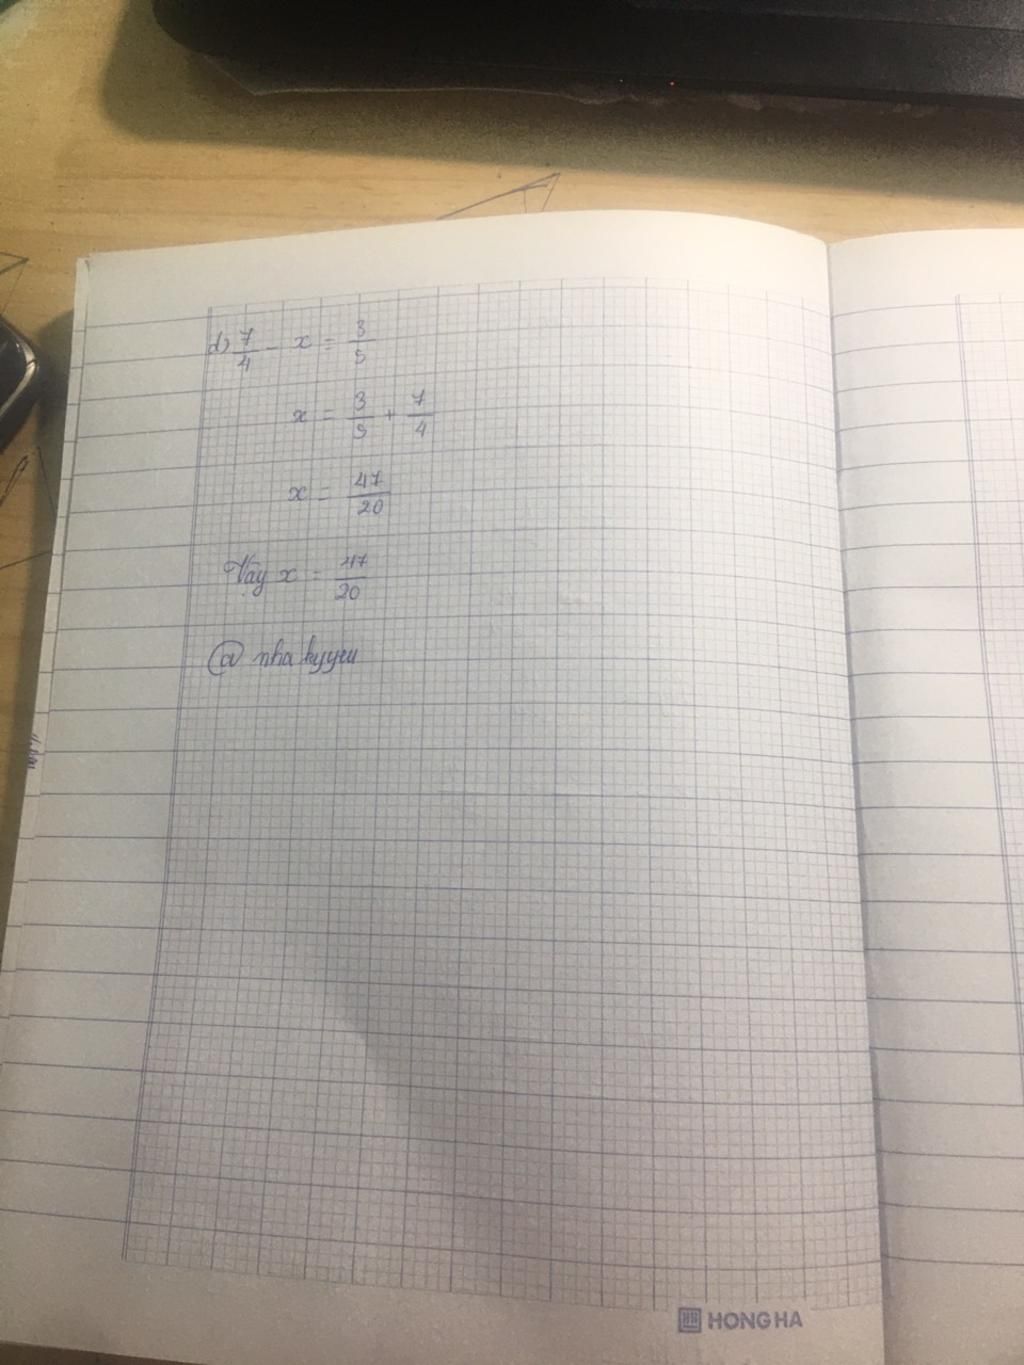 d) 7/4 - x = 3/5
x = 3/5 + 7/4
x = 47/20
Vậy x = 47/20
@ nhakyyeu
HONG HA